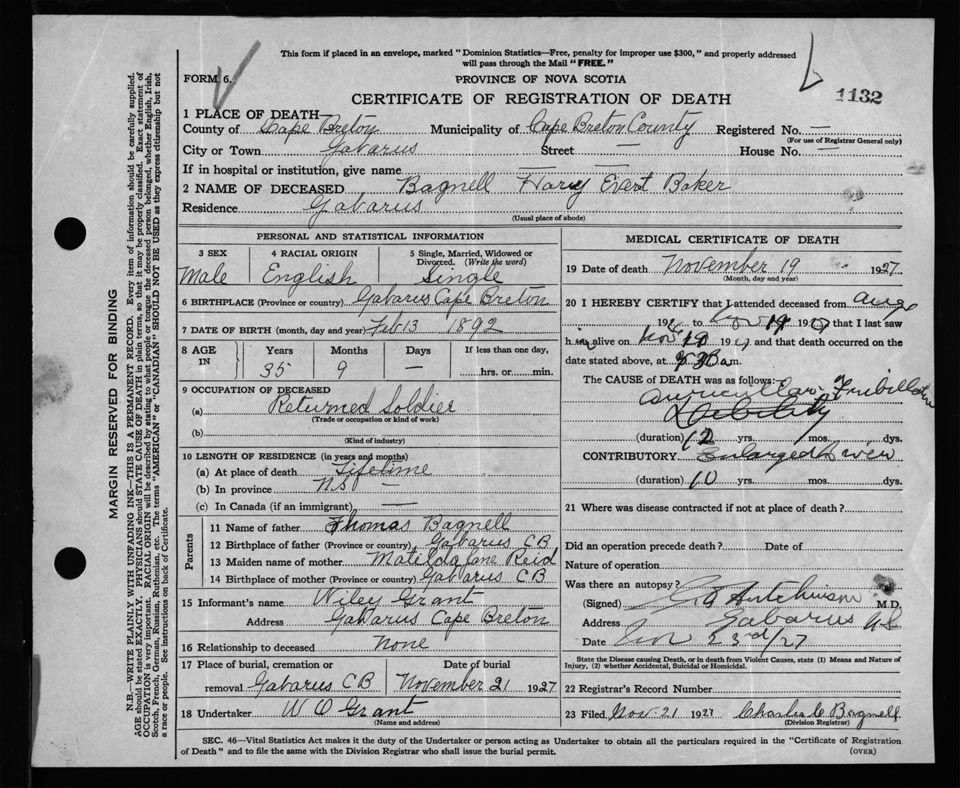 This form if placed in an envelope, marked "Dominion Statistics—Free, penalty for improper use $300," and properly addressed
will pass through the Mail "FREE."
FORM 6.
PROVINCE OF NOVA SCOTIA
CERTIFICATE OF REGISTRATION OF DEATH
1132
1 PLACE OF DEATH—
County of Cape Breton Municipality of Cape Breton County Registered No. —
(For use of Registrar General only)
City or Town Gabarus Street — House No. —
If in hospital or institution, give name —
2 NAME OF DECEASED Bagnell Harry Evert Baker
Residence Gabarus
(Usual place of abode)
PERSONAL AND STATISTICAL INFORMATION
3 SEX 4 RACIAL ORIGIN 5 Single, Married, Widowed or
Divorced. (Write the word)
Male English Single
6 BIRTHPLACE (Province or country) Gabarus Cape Breton
7 DATE OF BIRTH (month, day and year) Feb 13 1892
8 AGE IN Years Months Days If less than one day,
35 9 — hrs. or min.
9 OCCUPATION OF DECEASED
(a) Returned Soldier
(Trade or occupation or kind of work)
(b)
(Kind of industry)
10 LENGTH OF RESIDENCE (in years and months)
(a) At place of death Lifetime
(b) In province NS —
(c) In Canada (if an immigrant) —
Parents
11 Name of father Thomas Bagnell
12 Birthplace of father (Province or country) Gabarus CB
13 Maiden name of mother Matilda Jane Reid
14 Birthplace of mother (Province or country) Gabarus CB
15 Informant's name Wiley Grant
Address Gabarus Cape Breton
16 Relationship to deceased None
17 Place of burial, cremation or Date of burial
removal Gabarus CB November 21 1927
18 Undertaker W O Grant
(Name and address)
MEDICAL CERTIFICATE OF DEATH
19 Date of death November 19 1927
(Month, day and year)
20 I HEREBY CERTIFY that I attended deceased from Aug
19 to Nov 19 19 that I last saw
h im alive on Nov 19 19 and that death occurred on the
date stated above, at m.
The CAUSE of DEATH was as follows:
Auricular
(duration) 12 yrs. mos. dys.
CONTRIBUTORY Enlarged Liver
(duration) 10 yrs. mos. dys.
21 Where was disease contracted if not at place of death?
Did an operation precede death? Date of
Nature of operation
Was there an autopsy?
(Signed) Hutchinson M.D.
Address Gabarus NS
Date Nov 23rd/27
State the Disease causing Death, or in death from Violent Causes, state (1) Means and Nature of
Injury, (2) whether Accidental, Suicidal or Homicidal.
22 Registrar's Record Number
23 Filed Nov 21 1927 Charles C Bagnell
(Division Registrar)
SEC. 46—Vital Statistics Act makes it the duty of the Undertaker or person acting as Undertaker to obtain all the particulars required in the "Certificate of Registration
of Death" and to file the same with the Division Registrar who shall issue the burial permit. (OVER)
MARGIN RESERVED FOR BINDING
N.B.—WRITE PLAINLY WITH UNFADING INK—THIS IS A PERMANENT RECORD. Every item of information should be carefully supplied.
AGE should be stated EXACTLY. PHYSICIANS should STATE CAUSE OF DEATH in plain terms, so that it may be properly classified. Exact statement of
OCCUPATION is very important. RACIAL ORIGIN will be described by stating to what people or tongue the deceased person belonged, whether English, Irish,
Scotch, French, German, Russian, Ruthenian, etc. The terms "AMERICAN" or "CANADIAN" SHOULD NOT BE USED as they express citizenship but not
a race or people. See instructions on back of Certificate.